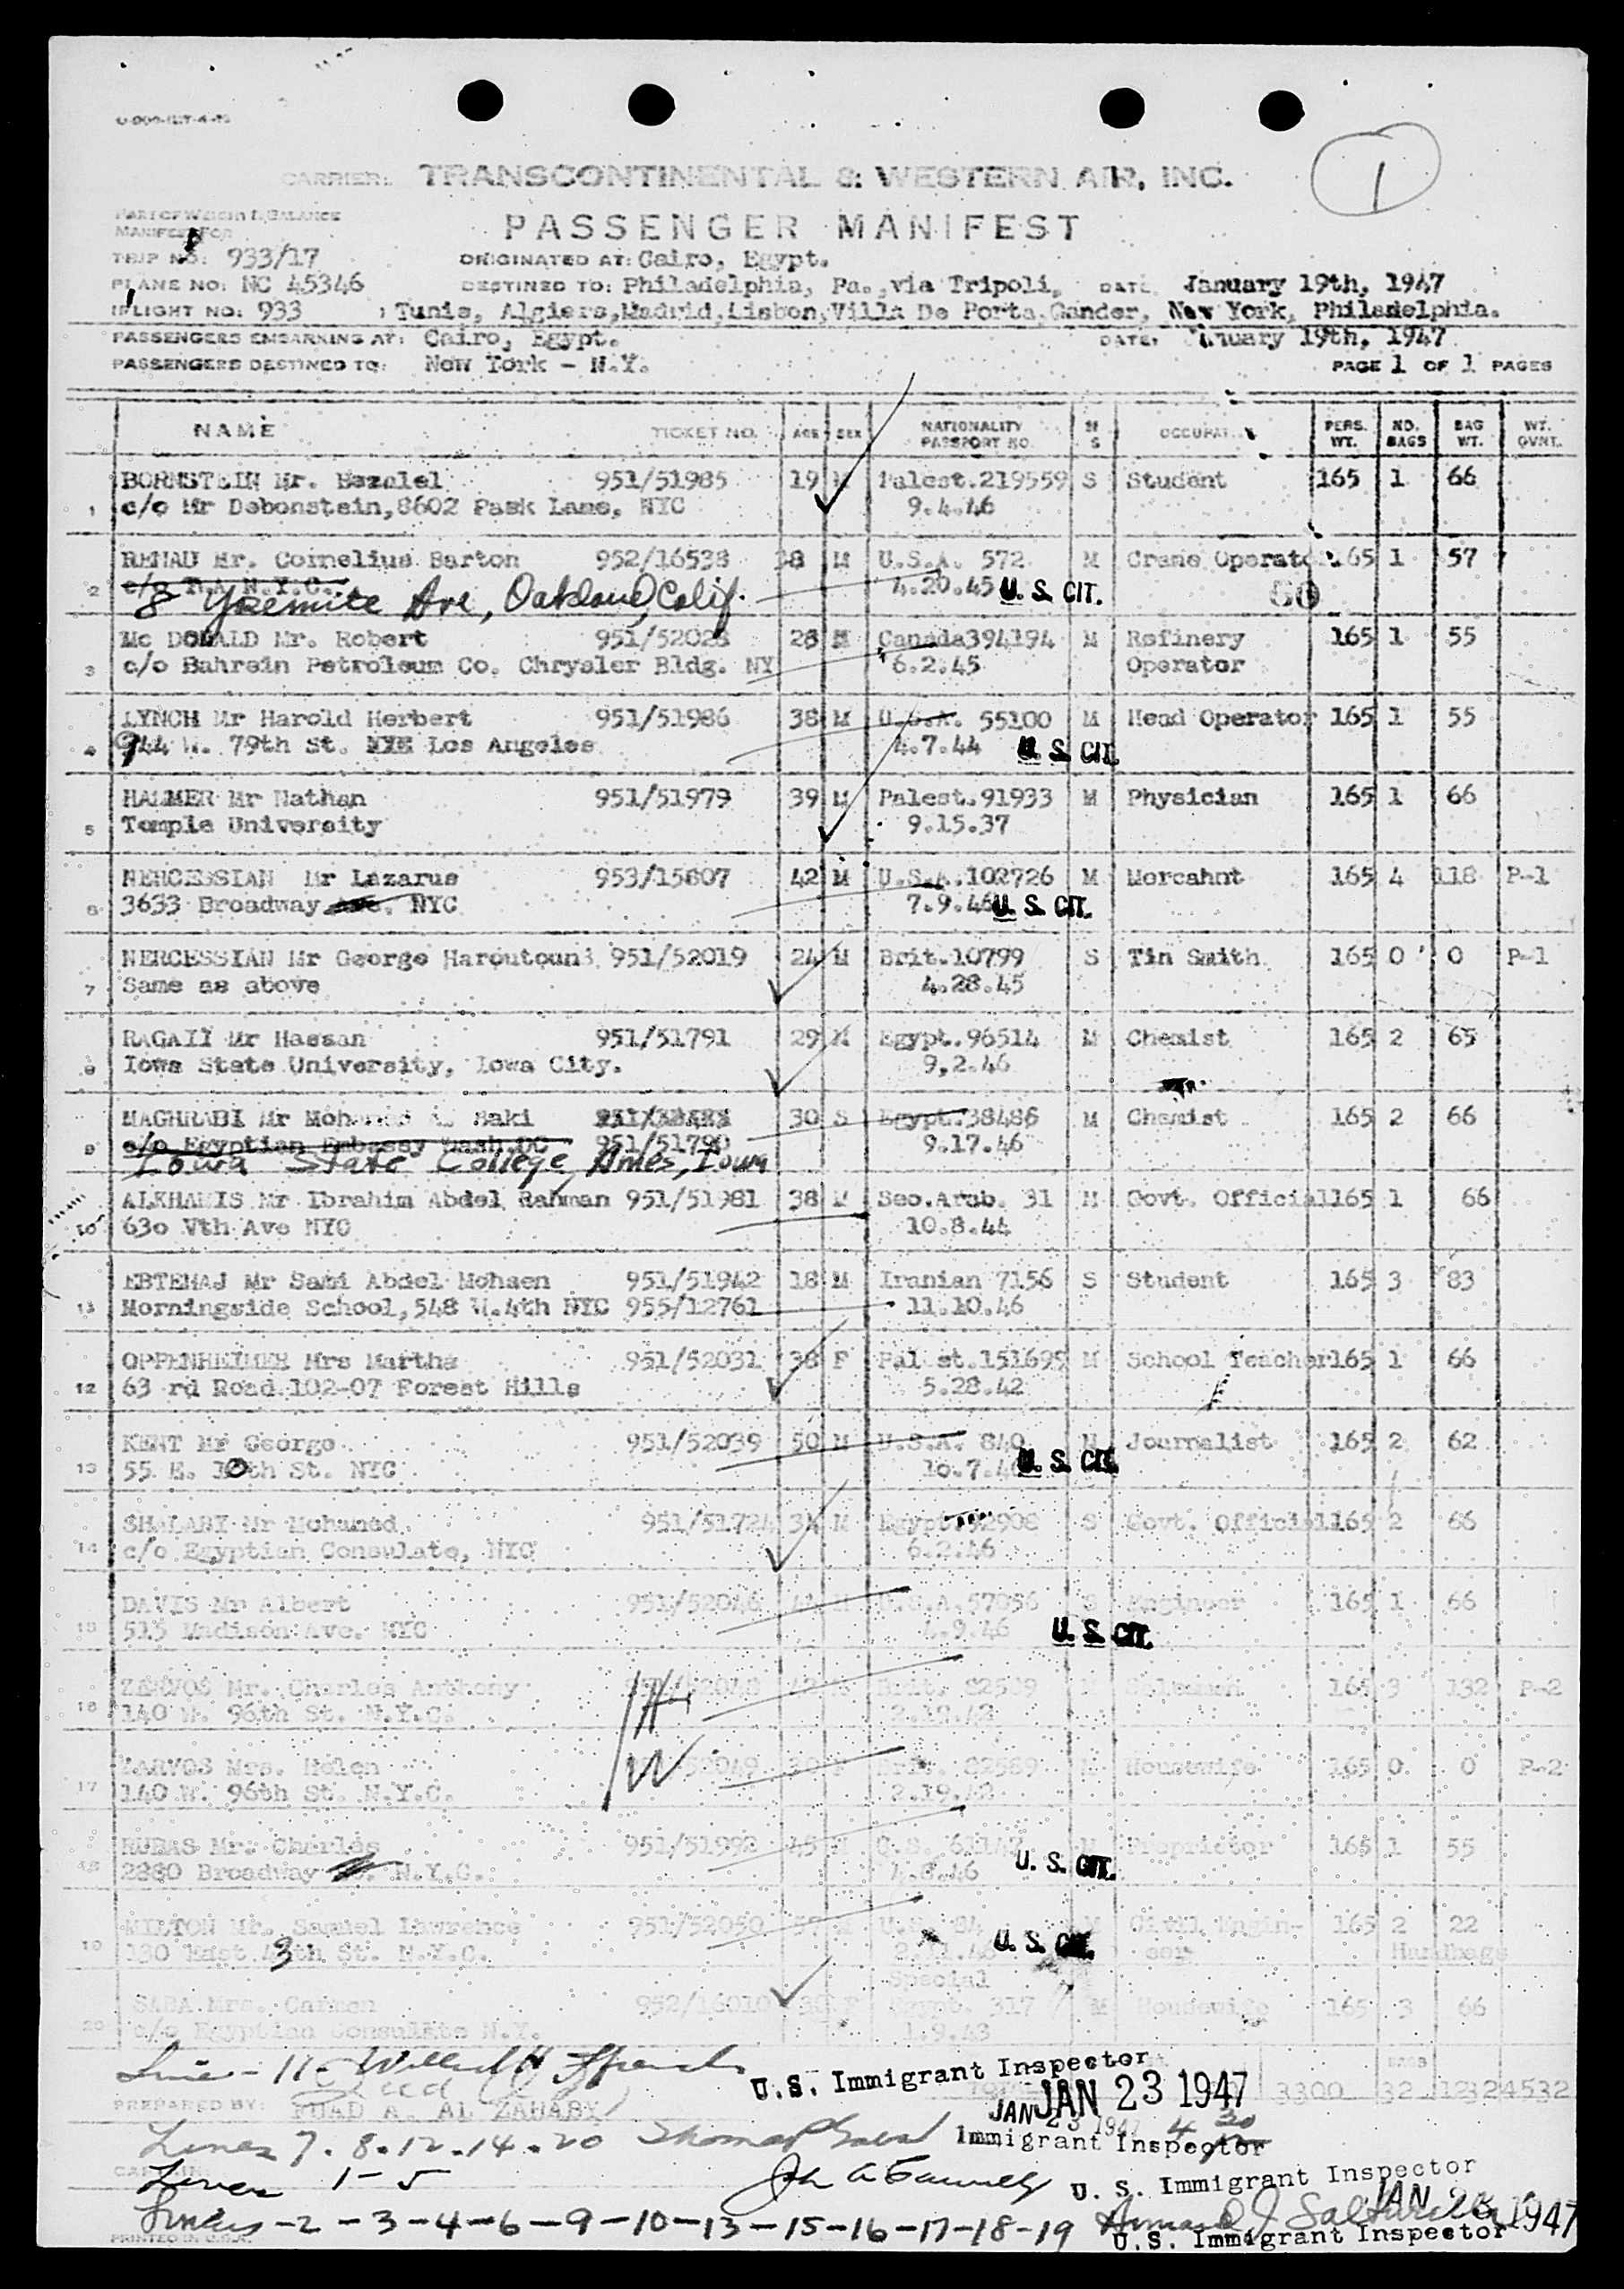 CARRIER: TRANSCONTINENTAL & WESTERN AIR, INC.
1
PART OF WEIGHT & BALANCE
MANIFEST FOR
PASSENGER MANIFEST
TRIP NO: 933/17 ORIGINATED AT: Cairo, Egypt.
PLANE NO: NC 45346 DESTINED TO: Philadelphia, Pa., via Tripoli, DATE January 19th, 1947
FLIGHT NO: 933 Tunis, Algiers, Madrid, Lisbon, Villa De Porta, Gander, New York, Philadelphia.
PASSENGERS EMBARKING AT: Cairo, Egypt. DATE: January 19th, 1947
PASSENGERS DESTINED TO: New York - N.Y. PAGE 1 OF 1 PAGES
NAME TICKET NO. AGE SEX NATIONALITY PASSPORT NO. M S OCCUPAT. PERS. WT. NO. BAGS BAG WT. WT. OVNT.
BORNSTEIN Mr. Bezalel 951/51985 19 M Palest.219559 S Student 165 1 66
1 c/o Mr Debonstein,8602 Pask Lane, NYC 9.4.46
REHAU Mr. Cornelius Barton 952/16538 38 M U.S.A. 572 M Crane Operator 165 1 57
2 c/o B.A.N.Y.C. 4.20.45 U. S. CIT.
8 Yosemite Ave, Oakland, Calif.
Mc DONALD Mr. Robert 951/52028 28 M Canada394194 M Refinery 165 1 55
3 c/o Bahrein Petroleum Co. Chrysler Bldg. NY 6.2.45 Operator
LYNCH Mr Harold Herbert 951/51986 38 M U.S.A. 55100 M Head Operator 165 1 55
4 944 W. 79th St. Los Angeles 4.7.44 U. S. CIT.
HALMER Mr Nathan 951/51979 39 M Palest.91933 M Physician 165 1 66
5 Temple University 9.15.37
NERCESSIAN Mr Lazarus 953/15807 42 M U.S.A.102726 M Morcahnt 165 4 118 P-1
6 3633 Broadway NYC 7.9.46 U. S. CIT.
NERCESSIAN Mr George Haroutouni 951/52019 24 M Brit.10799 S Tin Smith 165 0 0 P-1
7 Same as above 4.28.45
RAGAII Mr Hassan 951/51791 29 M Egypt.96514 M Chemist 165 2 65
8 Iowa State University, Iowa City. 9,2.46
MAGHRABI Mr Mohamed Saki 30 S Egypt.38486 M Chemist 165 2 66
9 c/o Egyptian Embassy Wash.DC 951/51790 9.17.46
Iowa State College, Ames, Iowa
ALKHAMIS Mr Ibrahim Abdel Rahman 951/51981 38 M Seo.Arab. 31 M Govt. Official 165 1 66
10 630 Vth Ave NYC 10.8.44
EBTEHAJ Mr Sami Abdel Mohsen 951/51942 18 M Iranian 7156 S Student 165 3 83
11 Morningside School,548 W.4th NYC 955/12761 11.10.46
OPPENHEIMER Mrs Martha 951/52031 38 F Palest.151695 M School Teacher 165 1 66
12 63 rd Road 102-07 Forest Hills 5.28.42
KENT Mr George 951/52039 50 M U.S.A. 840 M Journalist 165 2 62
13 55 E. 10th St. NYC 10.7.46 U. S. CIT.
SHALABY Mr Mohamed 951/51724 34 M Egypt.52908 S Govt. Official 165 2 66
14 c/o Egyptian Consulate, NYC 6.2.46
DAVIS Mr Albert 951/52046 M U.S.A.57056 S Engineer 165 1 66
15 515 Madison Ave. NYC 4.9.46 U. S. CIT.
ZARVOS Mr. Charles Anthony 42 Brit. 82589 Salesman 165 3 132 P-2
16 140 W. 96th St. N.Y.C. H 2.19.42
ZARVOS Mrs. Helen 52049 Brit. 82589 M Housewife 165 0 0 P-2
17 140 W. 96th St. N.Y.C. W 2.19.42
RUBAS Mr. Charles 951/51992 45 M U.S. M Proprietor 165 1 55
18 2280 Broadway N.Y.C. 4.8.46 U. S. CIT.
MILTON Mr. Samuel Lawrence 951/52050 M U.S. 84 M Civil Engin- 165 2 22
19 130 East 43th St. N.Y.C. U. S. CIT. eer Handbags
Special
SABA Mrs. Carmen 952/16010 F Egypt. 317 M Housewife 165 3 66
20 c/o Egyptian Consulate N.Y. 1.9.43
Line - 11 - Willard H
U.S. Immigrant Inspector
JAN 23 1947
3300 32 1232 4532
PREPARED BY: FUAD A. AL ZAHABY
JAN 23 1947 4 30
Lines 7. 8. 12. 14. 20 Thomas
Immigrant Inspector
Lines 1 - 5 John A
U. S. Immigrant Inspector
JAN 23 1947
Lines - 2 - 3 - 4 - 6 - 9 - 10 - 13 - 15 - 16 - 17 - 18 - 19 Armand J
U.S. Immigrant Inspector
PRINTED IN U.S.A.